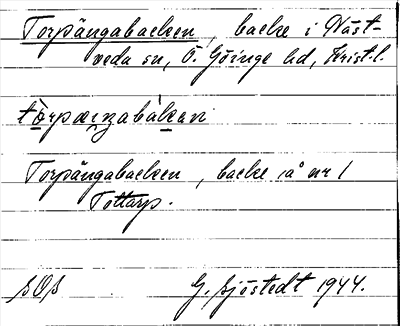 Torpängabacken, backe i Näst-
veda sn, Ö. Göinge hd, Krist. l.
tòrpæŋabàkan
Torpängabacken, backe å nr 1
Tottarp.
G. Sjöstedt 1944.